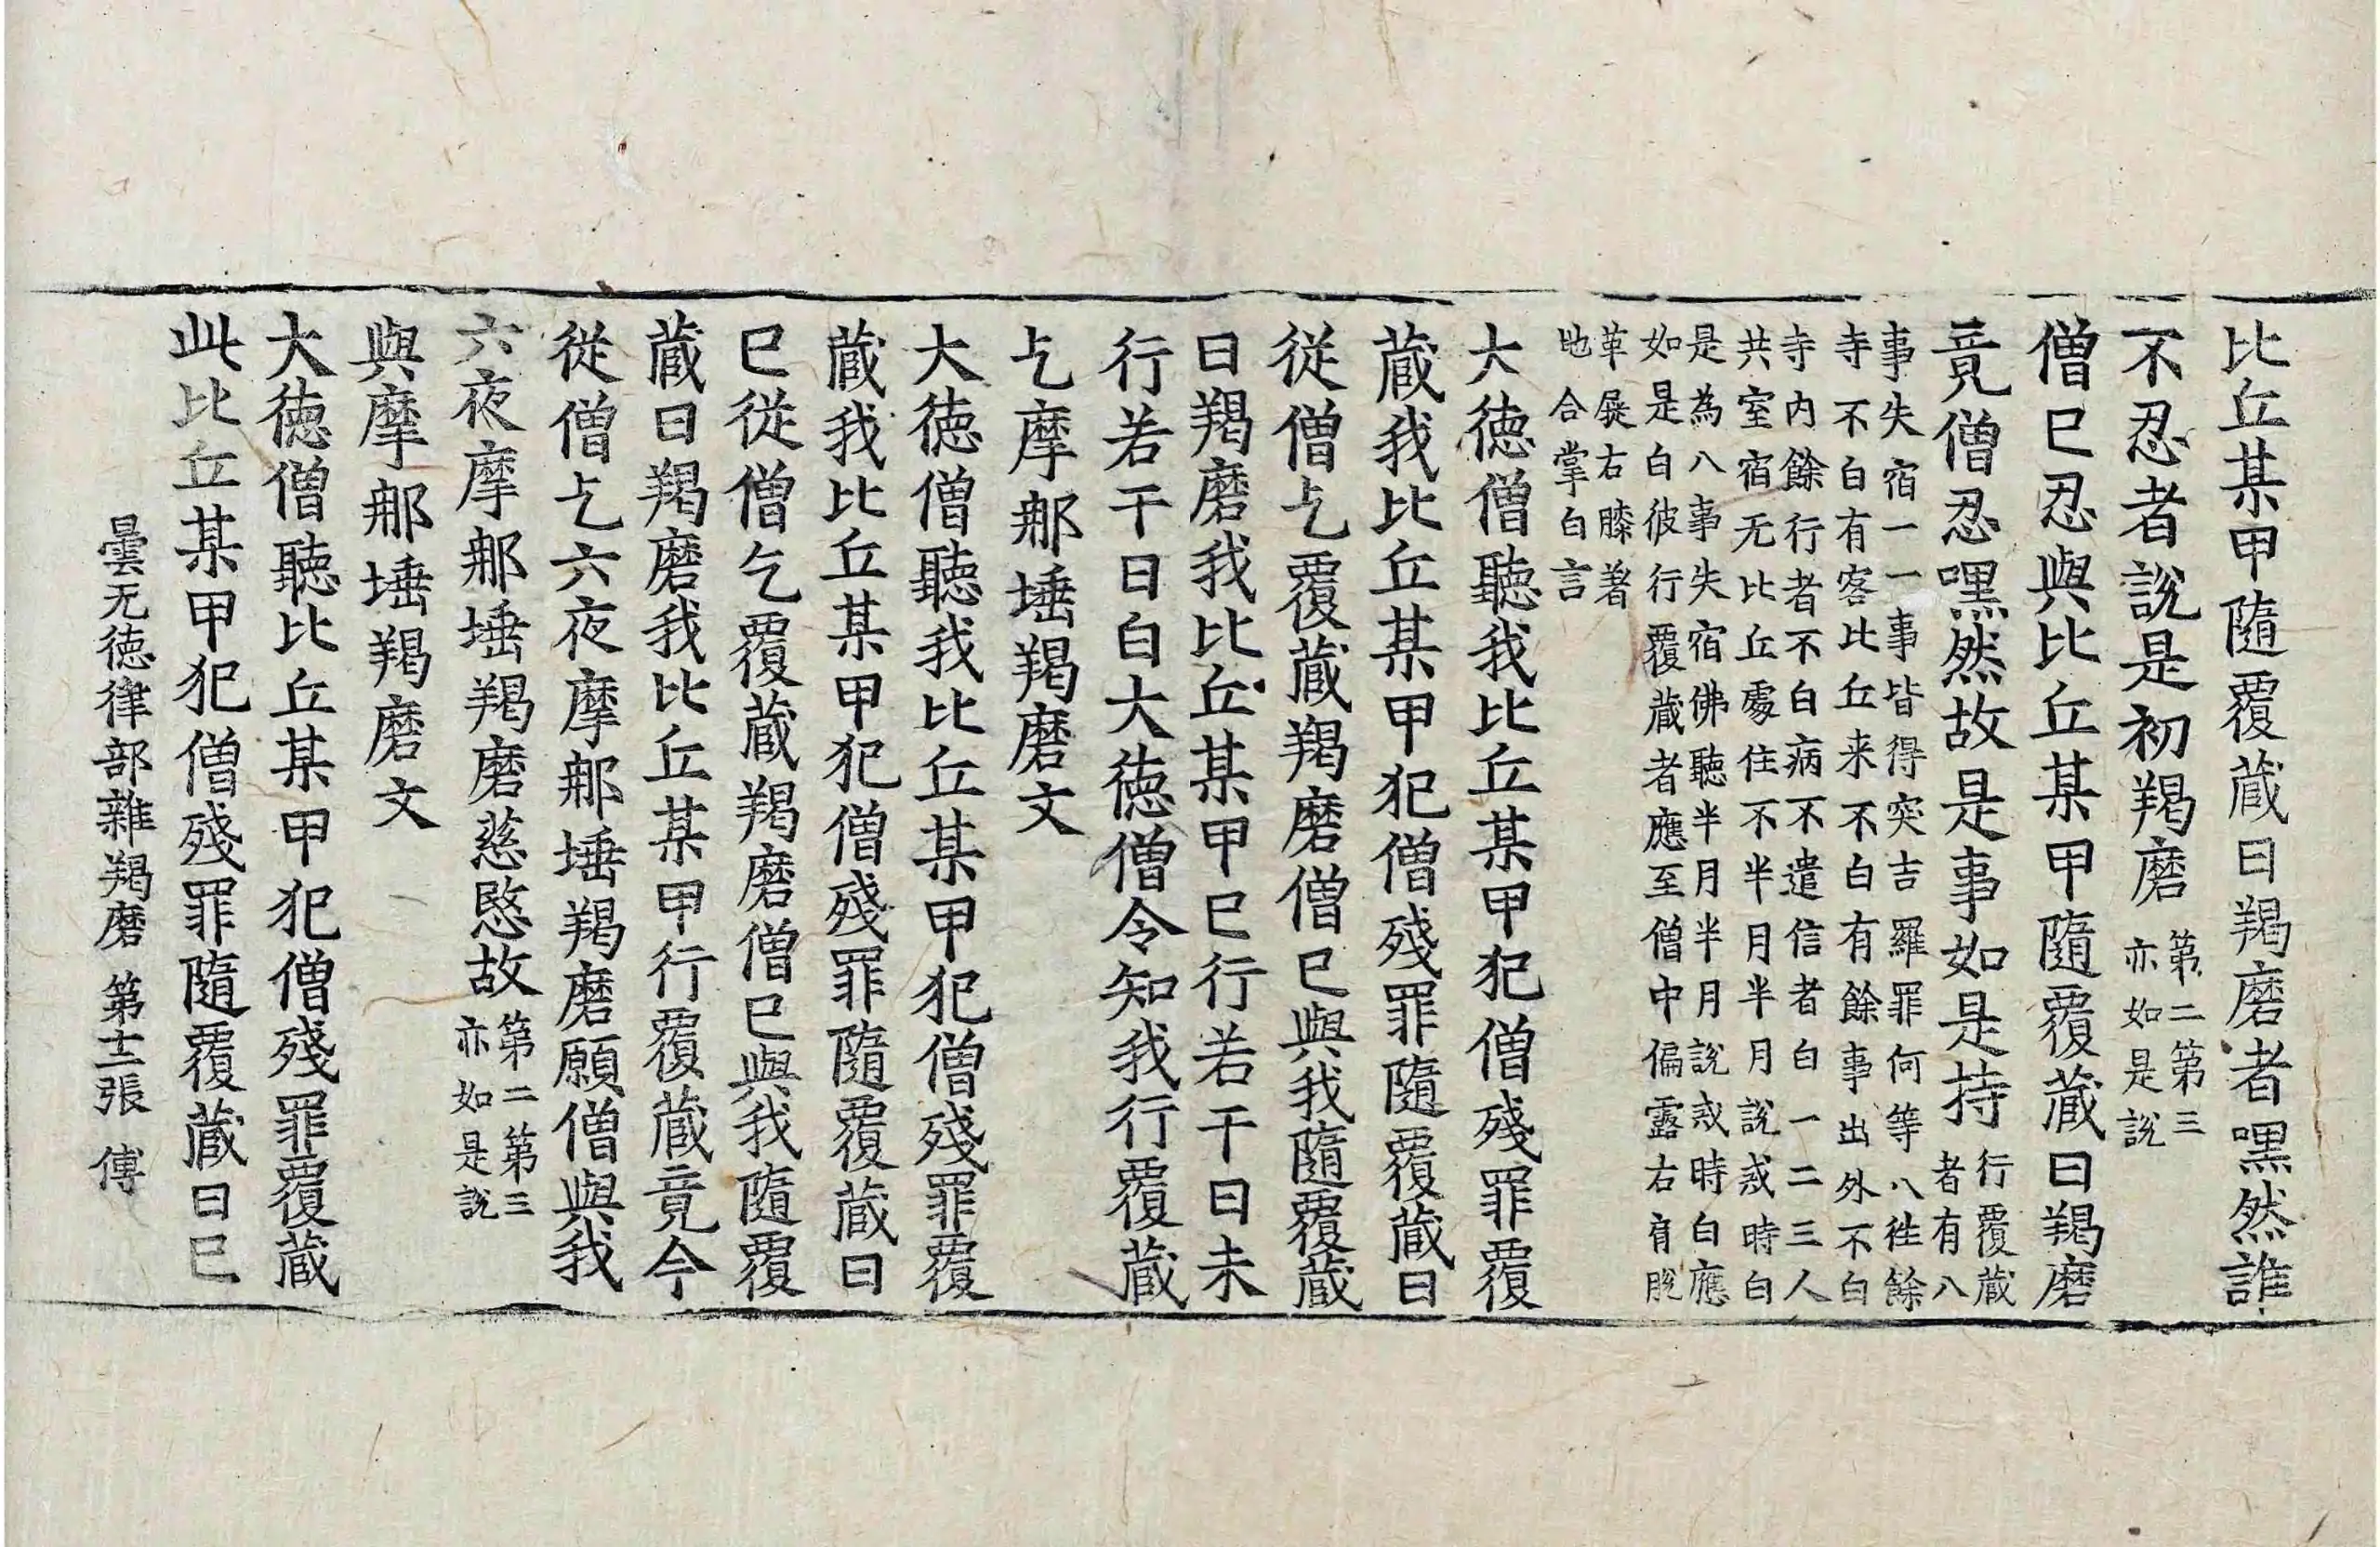 比丘某甲隨覆蔵日羯磨者嘿然誰
不忍者說是初羯磨第二第三亦如是說
僧已忍與比丘某甲隨覆蔵日羯磨
竟僧忍嘿然故是事如是持行覆蔵者有八
事失宿一一事皆得突吉羅罪何等八徃餘
寺不白有客比丘来不白有餘事出外不白
寺内餘行者不白病不遣信者白一二三人
共室宿无比丘處住不半月半月說戒時白
是為八事失宿佛聽半月半月說戒時白應
如是白彼行覆蔵者應至僧中偏露右肩脫
革屣右膝著
地合掌白言
大徳僧聽我比丘某甲犯僧殘罪覆
蔵我比丘某甲犯僧殘罪隨覆蔵日
從僧乞覆蔵羯磨僧已與我隨覆蔵
日羯磨我比丘某甲已行若干日未
行若干日白大徳僧令知我行覆蔵
乞摩那埵羯磨文
大徳僧聽我比丘某甲犯僧殘罪覆
蔵我比丘某甲犯僧殘罪隨覆蔵日
已從僧乞覆蔵羯磨僧已與我隨覆
蔵日羯磨我比丘某甲行覆蔵竟今
從僧乞六夜摩那埵羯磨願僧與我
六夜摩那埵羯磨慈愍故第二第三亦如是說
與摩那埵羯磨文
大徳僧聽比丘某甲犯僧殘罪覆蔵
此比丘某甲犯僧殘罪隨覆蔵日已
曇无徳律部雜羯磨 第十二張 傅